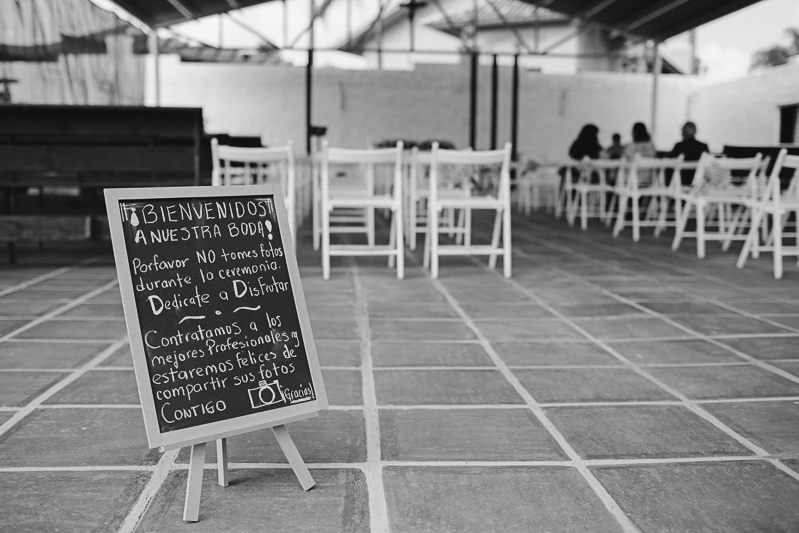 ¡BIENVENIDOS
A NUESTRA BODA!
Porfavor NO tomes fotos
durante la ceremonia.
Dedicate a Disfrutar
Contratamos a los
mejores Profesionales y
estaremos felices de
compartir sus fotos
CONTIGO ¡Gracias!